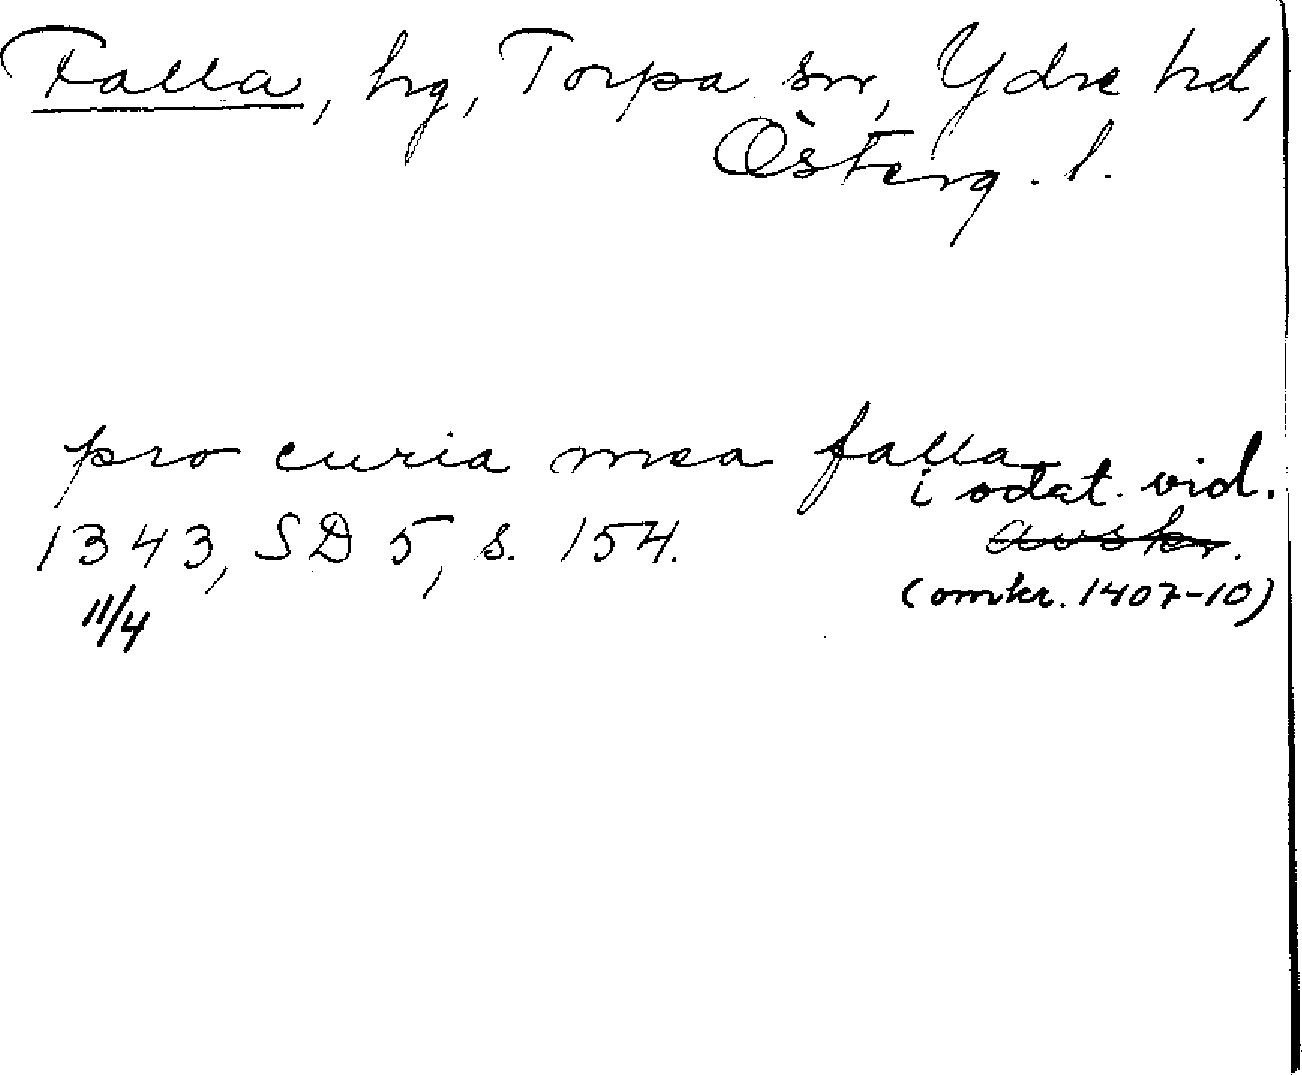 Falla, hg, Torpa sn, Ydre hd,
Österg. l.
pro curia mea falla
i odat. vid.
1343, SD 5, s. 154. avskr.
11/4 (omkr. 1407-10)